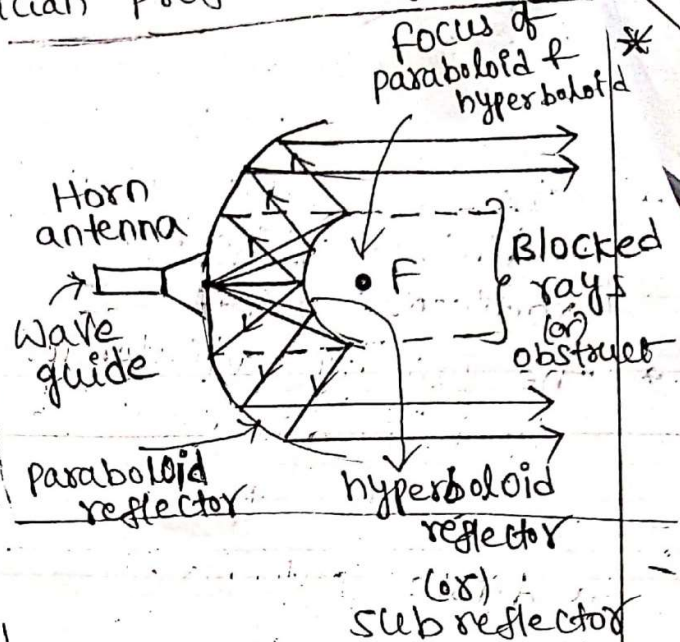 focus of
paraboloid &
hyperboloid
*
Horn
antenna
F
Blocked
rays
(or)
obstruct
Wave
guide
paraboloid
reflector
hyperboloid
reflector
(or)
sub reflector